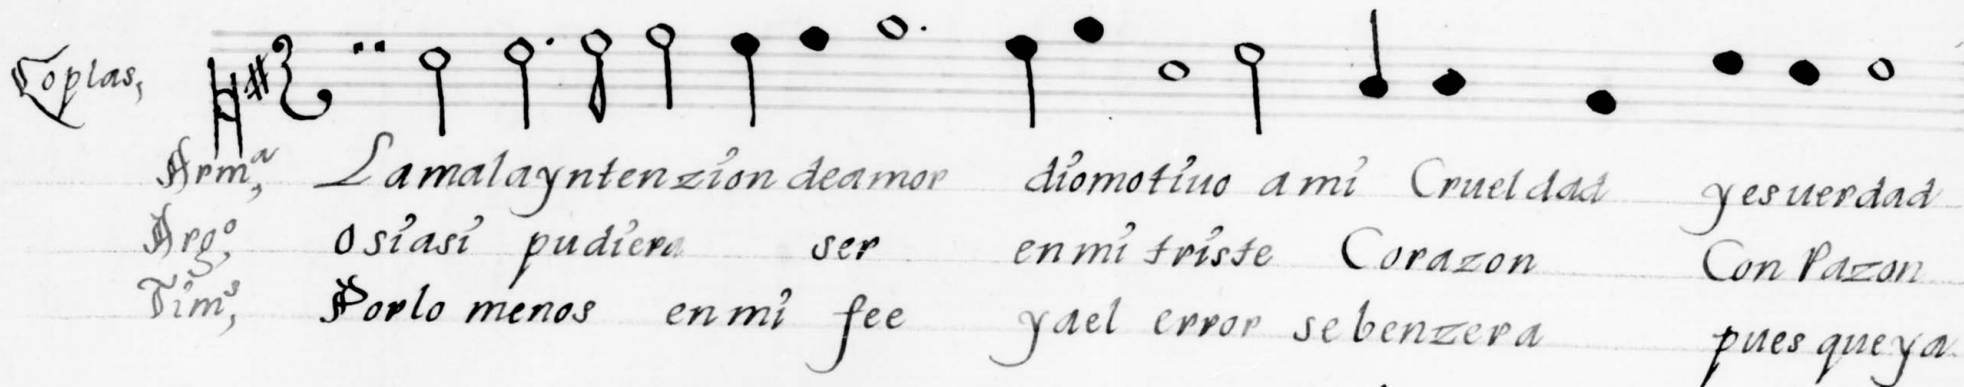 Coplas,
Arm.ª, La mala yntenzion de amor dio motiuo a mi Crueldad y es uerdad
Arg.º, o si asi pudiera ser en mi triste Corazon Con Razon
Tim.ˢ, Por lo menos en mi fee ya el error se benzera pues que ya